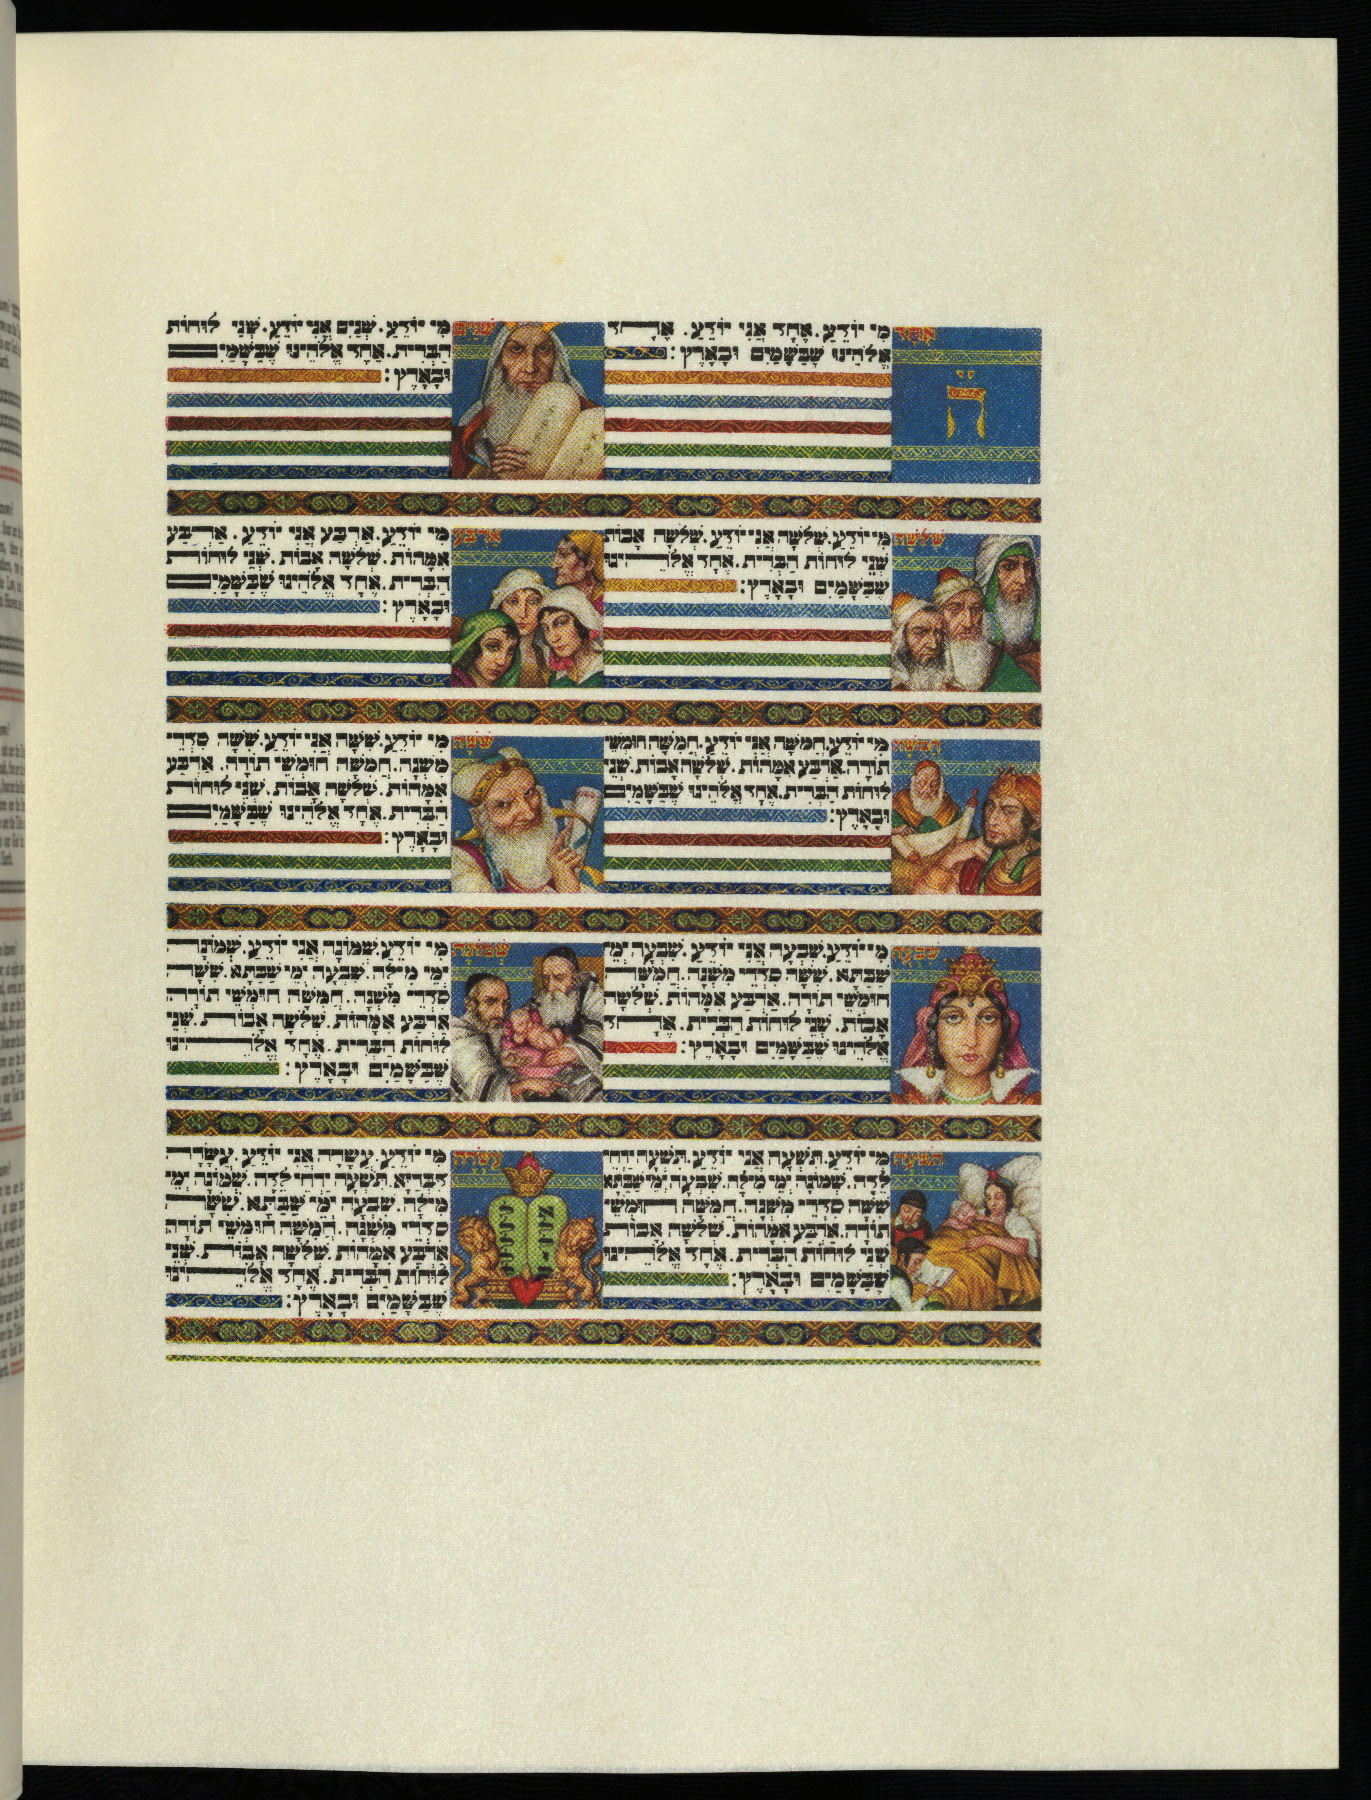 אחד
הֿ
מִי יוֹדֵעַ. אֶחָד אֲנִי יוֹדֵעַ. אֶחָד
אֱלֹהֵינוּ שֶׁבַּשָּׁמַיִם וּבָאָרֶץ:
שְׁנַיִם
מִי יוֹדֵעַ. שְׁנַיִם אֲנִי יוֹדֵעַ. שְׁנֵי לוּחוֹת
הַבְּרִית. אֶחָד אֱלֹהֵינוּ שֶׁבַּשָּׁמַיִ
וּבָאָרֶץ:
שְׁלֹשָׁה
מִי יוֹדֵעַ. שְׁלֹשָׁה אֲנִי יוֹדֵעַ. שְׁלֹשָׁה אָבוֹת
שְׁנֵי לוּחוֹת הַבְּרִית. אֶחָד אֱלֹהֵינוּ
שֶׁבַּשָּׁמַיִם וּבָאָרֶץ:
אַרְבַּע
מִי יוֹדֵעַ. אַרְבַּע אֲנִי יוֹדֵעַ. אַרְבַּע
אִמָּהוֹת. שְׁלֹשָׁה אָבוֹת. שְׁנֵי לוּחוֹת
הַבְּרִית. אֶחָד אֱלֹהֵינוּ שֶׁבַּשָּׁמַיִ
וּבָאָרֶץ:
חֲמִשָּׁה
מִי יוֹדֵעַ. חֲמִשָּׁה אֲנִי יוֹדֵעַ. חֲמִשָּׁה חוּמְשֵׁי
תוֹרָה. אַרְבַּע אִמָּהוֹת. שְׁלֹשָׁה אָבוֹת. שְׁנֵי
לוּחוֹת הַבְּרִית. אֶחָד אֱלֹהֵינוּ שֶׁבַּשָּׁמַיִם
וּבָאָרֶץ:
שִׁשָּׁה
מִי יוֹדֵעַ. שִׁשָּׁה אֲנִי יוֹדֵעַ. שִׁשָּׁה סִדְרֵי
מִשְׁנָה. חֲמִשָּׁה חוּמְשֵׁי תוֹרָה. אַרְבַּע
אִמָּהוֹת. שְׁלֹשָׁה אָבוֹת. שְׁנֵי לוּחוֹת
הַבְּרִית. אֶחָד אֱלֹהֵינוּ שֶׁבַּשָּׁמַיִ
וּבָאָרֶץ:
שִׁבְעָה
מִי יוֹדֵעַ. שִׁבְעָה אֲנִי יוֹדֵעַ. שִׁבְעָה יְמֵי
שַׁבְּתָא. שִׁשָּׁה סִדְרֵי מִשְׁנָה. חֲמִשָּׁה
חוּמְשֵׁי תוֹרָה. אַרְבַּע אִמָּהוֹת. שְׁלֹשָׁה
אָבוֹת. שְׁנֵי לוּחוֹת הַבְּרִית. אֶחָד
אֱלֹהֵינוּ שֶׁבַּשָּׁמַיִם וּבָאָרֶץ:
שְׁמוֹנָה
מִי יוֹדֵעַ. שְׁמוֹנָה אֲנִי יוֹדֵעַ. שְׁמוֹנָה
יְמֵי מִילָה. שִׁבְעָה יְמֵי שַׁבְּתָא. שִׁשָּׁה
סִדְרֵי מִשְׁנָה. חֲמִשָּׁה חוּמְשֵׁי תוֹרָה
אַרְבַּע אִמָּהוֹת. שְׁלֹשָׁה אָבוֹת. שְׁנֵי
לוּחוֹת הַבְּרִית. אֶחָד אֱלֹהֵינוּ
שֶׁבַּשָּׁמַיִם וּבָאָרֶץ:
תִּשְׁעָה
מִי יוֹדֵעַ. תִּשְׁעָה אֲנִי יוֹדֵעַ. תִּשְׁעָה יַרְחֵי
לֵדָה. שְׁמוֹנָה יְמֵי מִילָה. שִׁבְעָה יְמֵי שַׁבְּתָא
שִׁשָּׁה סִדְרֵי מִשְׁנָה. חֲמִשָּׁה חוּמְשֵׁי
תוֹרָה. אַרְבַּע אִמָּהוֹת. שְׁלֹשָׁה אָבוֹת
שְׁנֵי לוּחוֹת הַבְּרִית. אֶחָד אֱלֹהֵינוּ
שֶׁבַּשָּׁמַיִם וּבָאָרֶץ:
עֲשָׂרָה
מִי יוֹדֵעַ. עֲשָׂרָה אֲנִי יוֹדֵעַ. עֲשָׂרָה
דִבְּרַיָא. תִּשְׁעָה יַרְחֵי לֵדָה. שְׁמוֹנָה יְמֵי
מִילָה. שִׁבְעָה יְמֵי שַׁבְּתָא. שִׁשָּׁה
סִדְרֵי מִשְׁנָה. חֲמִשָּׁה חוּמְשֵׁי תוֹרָה
אַרְבַּע אִמָּהוֹת. שְׁלֹשָׁה אָבוֹת. שְׁנֵי
לוּחוֹת הַבְּרִית. אֶחָד אֱלֹהֵינוּ
שֶׁבַּשָּׁמַיִם וּבָאָרֶץ: